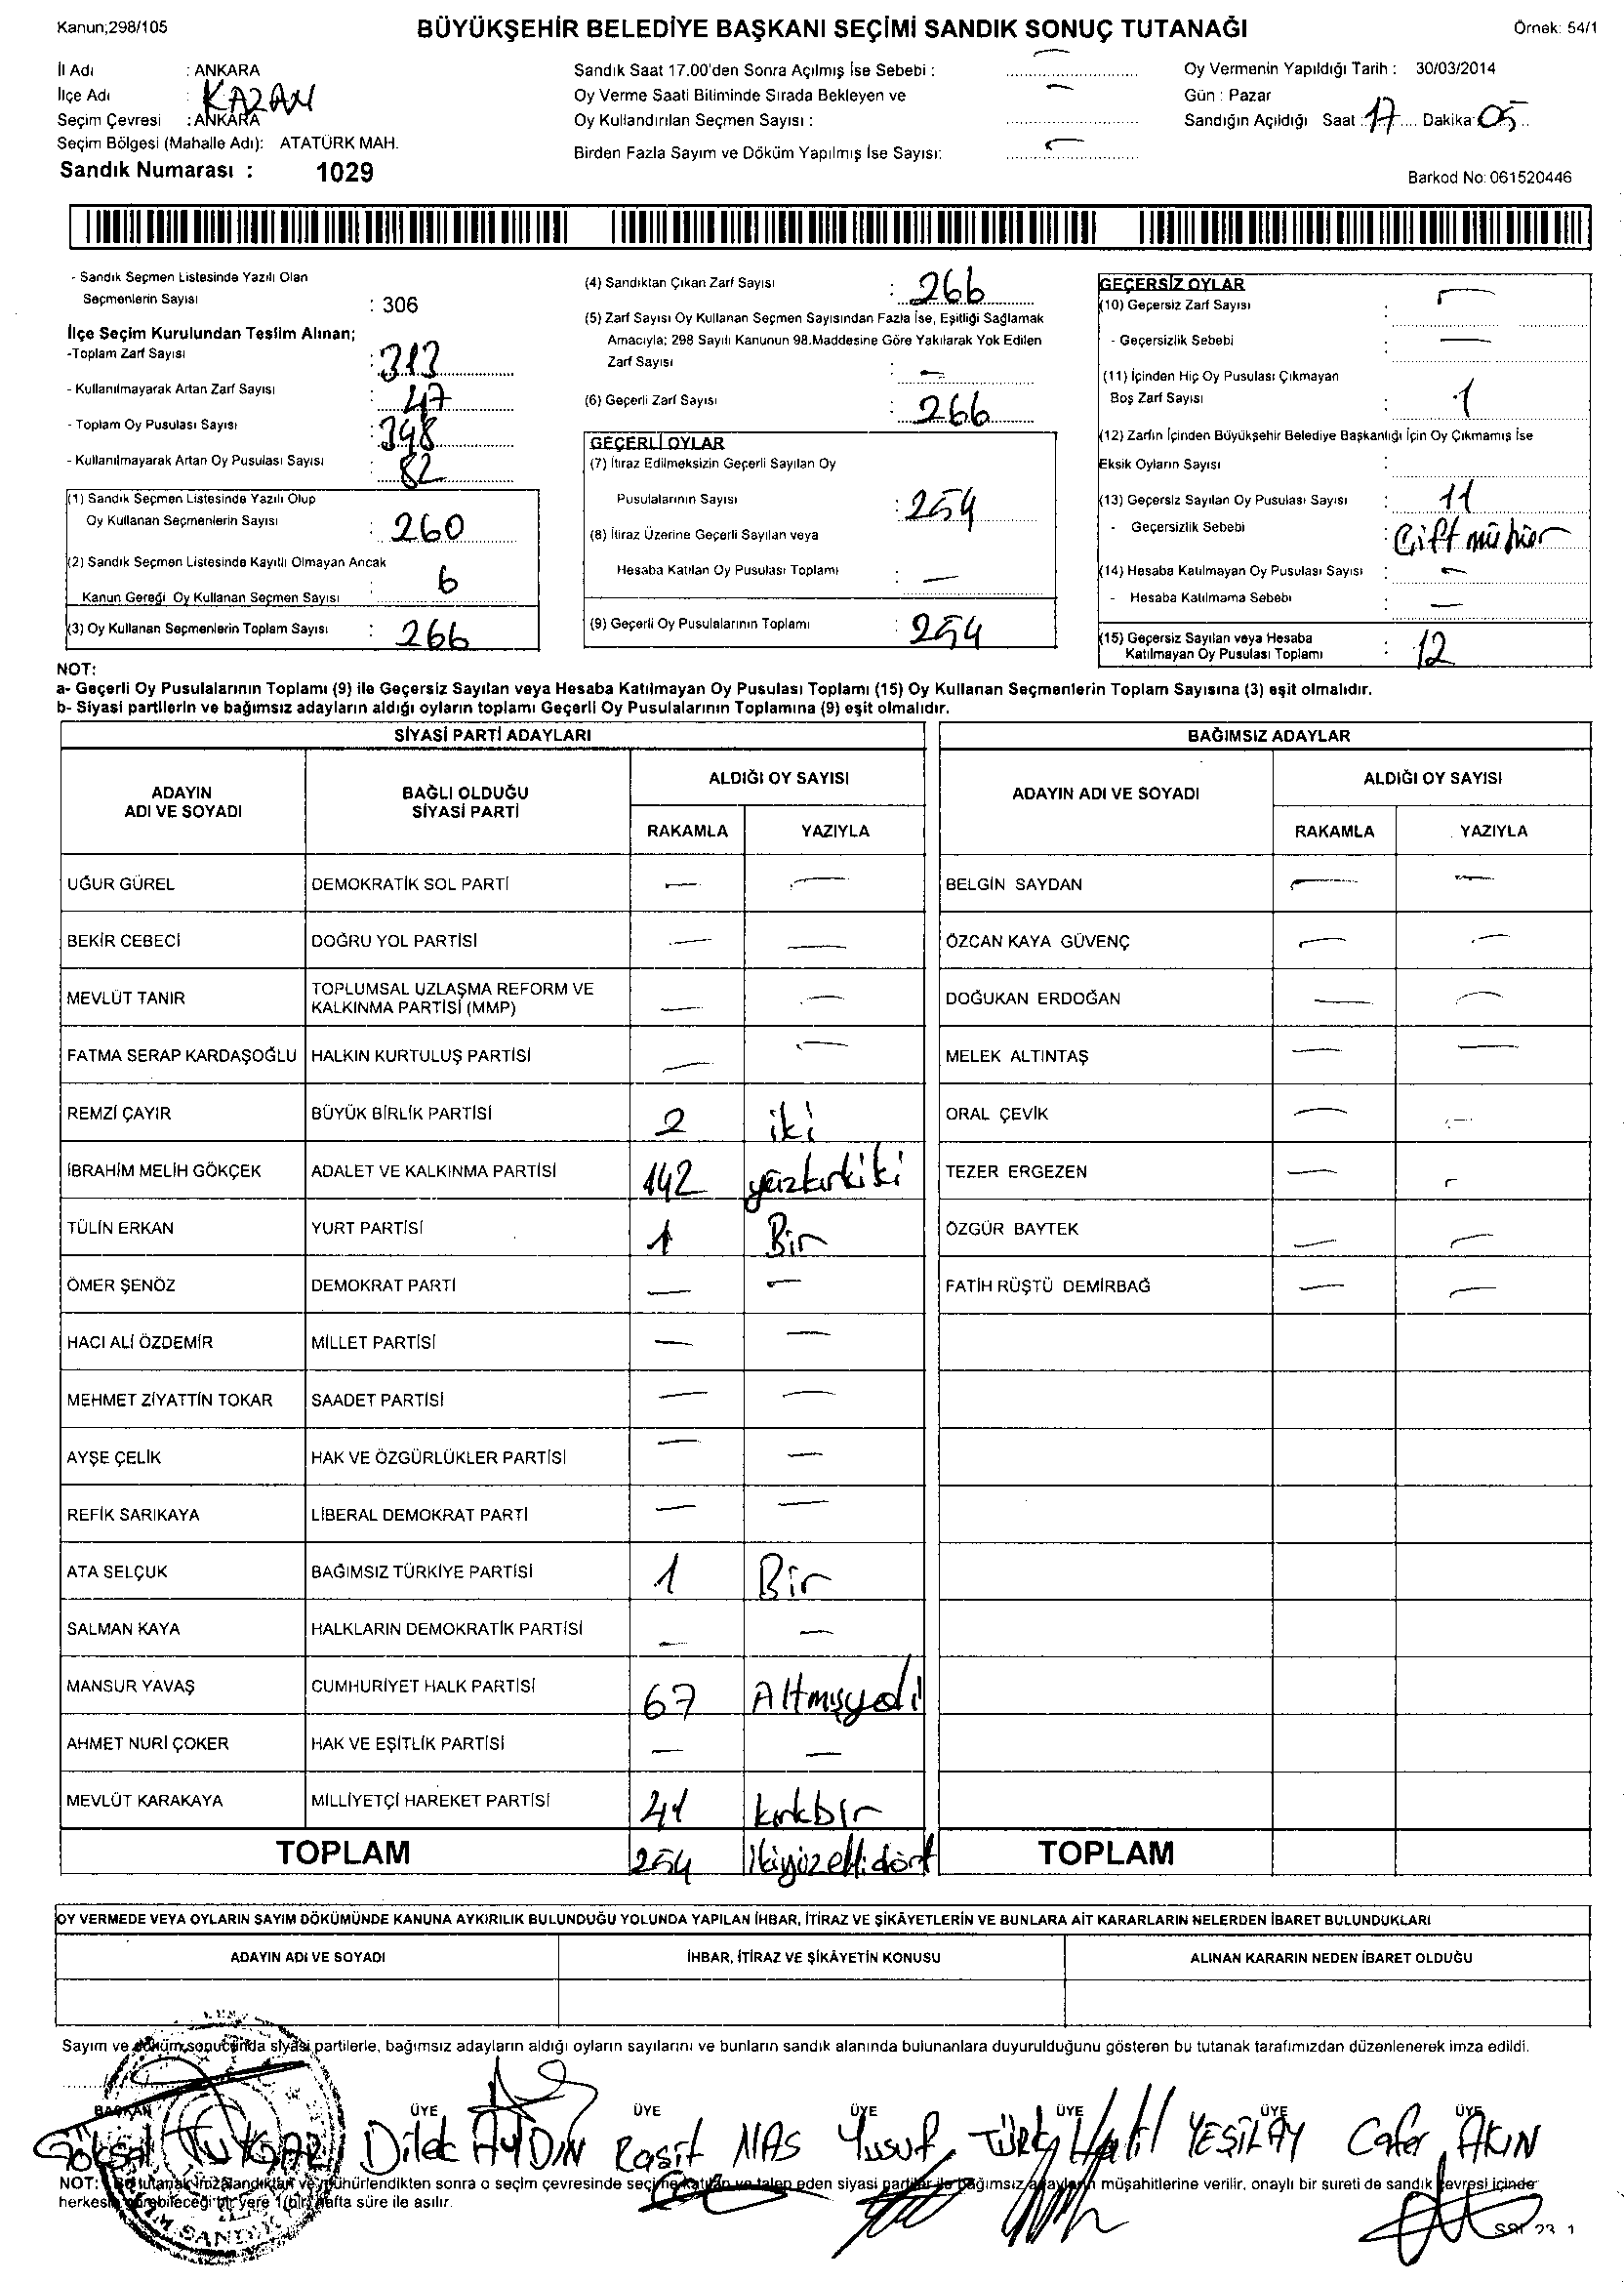 Kanun;298/105
BÜYÜKŞEHİR BELEDİYE BAŞKANI SEÇİMİ SANDIK SONUÇ TUTANAĞI
Örnek: 54/1
İl Adı : ANKARA
İlçe Adı : KAZAN
Seçim Çevresi : ANKARA
Seçim Bölgesi (Mahalle Adı): ATATÜRK MAH.
Sandık Numarası : 1029
Sandık Saat 17.00'den Sonra Açılmış İse Sebebi : —
Oy Verme Saati Bitiminde Sırada Bekleyen ve
Oy Kullandırılan Seçmen Sayısı : —
Birden Fazla Sayım ve Döküm Yapılmış İse Sayısı: —
Oy Vermenin Yapıldığı Tarih : 30/03/2014
Gün : Pazar
Sandığın Açıldığı Saat : 17 Dakika 05
Barkod No: 061520446
- Sandık Seçmen Listesinde Yazılı Olan
Seçmenlerin Sayısı : 306
İlçe Seçim Kurulundan Teslim Alınan;
-Toplam Zarf Sayısı : 313
- Kullanılmayarak Artan Zarf Sayısı : 47
- Toplam Oy Pusulası Sayısı : 348
- Kullanılmayarak Artan Oy Pusulası Sayısı : 82
(1) Sandık Seçmen Listesinde Yazılı Olup
Oy Kullanan Seçmenlerin Sayısı : 260
(2) Sandık Seçmen Listesinde Kayıtlı Olmayan Ancak
Kanun Gereği Oy Kullanan Seçmen Sayısı : 6
(3) Oy Kullanan Seçmenlerin Toplam Sayısı : 266
(4) Sandıktan Çıkan Zarf Sayısı : 266
(5) Zarf Sayısı Oy Kullanan Seçmen Sayısından Fazla İse, Eşitliği Sağlamak
Amacıyla; 298 Sayılı Kanunun 98.Maddesine Göre Yakılarak Yok Edilen
Zarf Sayısı : —
(6) Geçerli Zarf Sayısı : 266
GEÇERLİ OYLAR
(7) İtiraz Edilmeksizin Geçerli Sayılan Oy
Pusulalarının Sayısı : 254
(8) İtiraz Üzerine Geçerli Sayılan veya
Hesaba Katılan Oy Pusulası Toplamı : —
(9) Geçerli Oy Pusulalarının Toplamı : 254
GEÇERSİZ OYLAR
(10) Geçersiz Zarf Sayısı : —
- Geçersizlik Sebebi : —
(11) İçinden Hiç Oy Pusulası Çıkmayan
Boş Zarf Sayısı : 1
(12) Zarfın İçinden Büyükşehir Belediye Başkanlığı İçin Oy Çıkmamış İse
Eksik Oyların Sayısı :
(13) Geçersiz Sayılan Oy Pusulası Sayısı : 11
- Geçersizlik Sebebi : Çift mühür
(14) Hesaba Katılmayan Oy Pusulası Sayısı : —
- Hesaba Katılmama Sebebi : —
(15) Geçersiz Sayılan veya Hesaba
Katılmayan Oy Pusulası Toplamı : 12
NOT:
a- Geçerli Oy Pusulalarının Toplamı (9) ile Geçersiz Sayılan veya Hesaba Katılmayan Oy Pusulası Toplamı (15) Oy Kullanan Seçmenlerin Toplam Sayısına (3) eşit olmalıdır.
b- Siyasi partilerin ve bağımsız adayların aldığı oyların toplamı Geçerli Oy Pusulalarının Toplamına (9) eşit olmalıdır.
SİYASİ PARTİ ADAYLARI
ADAYIN ADI VE SOYADI BAĞLI OLDUĞU SİYASİ PARTİ ALDIĞI OY SAYISI
RAKAMLA YAZIYLA
UĞUR GÜREL DEMOKRATİK SOL PARTİ — —
BEKİR CEBECİ DOĞRU YOL PARTİSİ — —
MEVLÜT TANIR TOPLUMSAL UZLAŞMA REFORM VE KALKINMA PARTİSİ (MMP) — —
FATMA SERAP KARDAŞOĞLU HALKIN KURTULUŞ PARTİSİ — —
REMZİ ÇAYIR BÜYÜK BİRLİK PARTİSİ 2 iki
İBRAHİM MELİH GÖKÇEK ADALET VE KALKINMA PARTİSİ 142 yüzkırkiki
TÜLİN ERKAN YURT PARTİSİ 1 Bir
ÖMER ŞENÖZ DEMOKRAT PARTİ — —
HACI ALİ ÖZDEMİR MİLLET PARTİSİ — —
MEHMET ZİYATTİN TOKAR SAADET PARTİSİ — —
AYŞE ÇELİK HAK VE ÖZGÜRLÜKLER PARTİSİ — —
REFİK SARIKAYA LİBERAL DEMOKRAT PARTİ — —
ATA SELÇUK BAĞIMSIZ TÜRKİYE PARTİSİ 1 Bir
SALMAN KAYA HALKLARIN DEMOKRATİK PARTİSİ — —
MANSUR YAVAŞ CUMHURİYET HALK PARTİSİ 67 Altmışyedi
AHMET NURİ ÇOKER HAK VE EŞİTLİK PARTİSİ — —
MEVLÜT KARAKAYA MİLLİYETÇİ HAREKET PARTİSİ 41 kırkbir
TOPLAM 254 ikiyüzellidört
BAĞIMSIZ ADAYLAR
ADAYIN ADI VE SOYADI ALDIĞI OY SAYISI
RAKAMLA YAZIYLA
BELGİN SAYDAN — —
ÖZCAN KAYA GÜVENÇ — —
DOĞUKAN ERDOĞAN — —
MELEK ALTINTAŞ — —
ORAL ÇEVİK — —
TEZER ERGEZEN — —
ÖZGÜR BAYTEK — —
FATİH RÜŞTÜ DEMİRBAĞ — —
TOPLAM
OY VERMEDE VEYA OYLARIN SAYIM DÖKÜMÜNDE KANUNA AYKIRILIK BULUNDUĞU YOLUNDA YAPILAN İHBAR, İTİRAZ VE ŞİKÂYETLERİN VE BUNLARA AİT KARARLARIN NELERDEN İBARET BULUNDUKLARI
ADAYIN ADI VE SOYADI İHBAR, İTİRAZ VE ŞİKÂYETİN KONUSU ALINAN KARARIN NEDEN İBARET OLDUĞU
Sayım ve döküm sonucunda siyasi partilerle, bağımsız adayların aldığı oyların sayılarını ve bunların sandık alanında bulunanlara duyurulduğunu gösteren bu tutanak tarafımızdan düzenlenerek imza edildi.
BAŞKAN ÜYE ÜYE ÜYE ÜYE ÜYE ÜYE
Göksal Dilek AYDIN Raşit MAS Yusuf Halil YEŞİLAY Cafer AKIN
NOT: Bu tutanak imzalandıktan ve mühürlendikten sonra o seçim çevresinde seçime katılan ve talep eden siyasi partiler ile bağımsız adayların müşahitlerine verilir, onaylı bir sureti de sandık çevresi içinde
herkesin görebileceği bir yere 1(bir) hafta süre ile asılır.